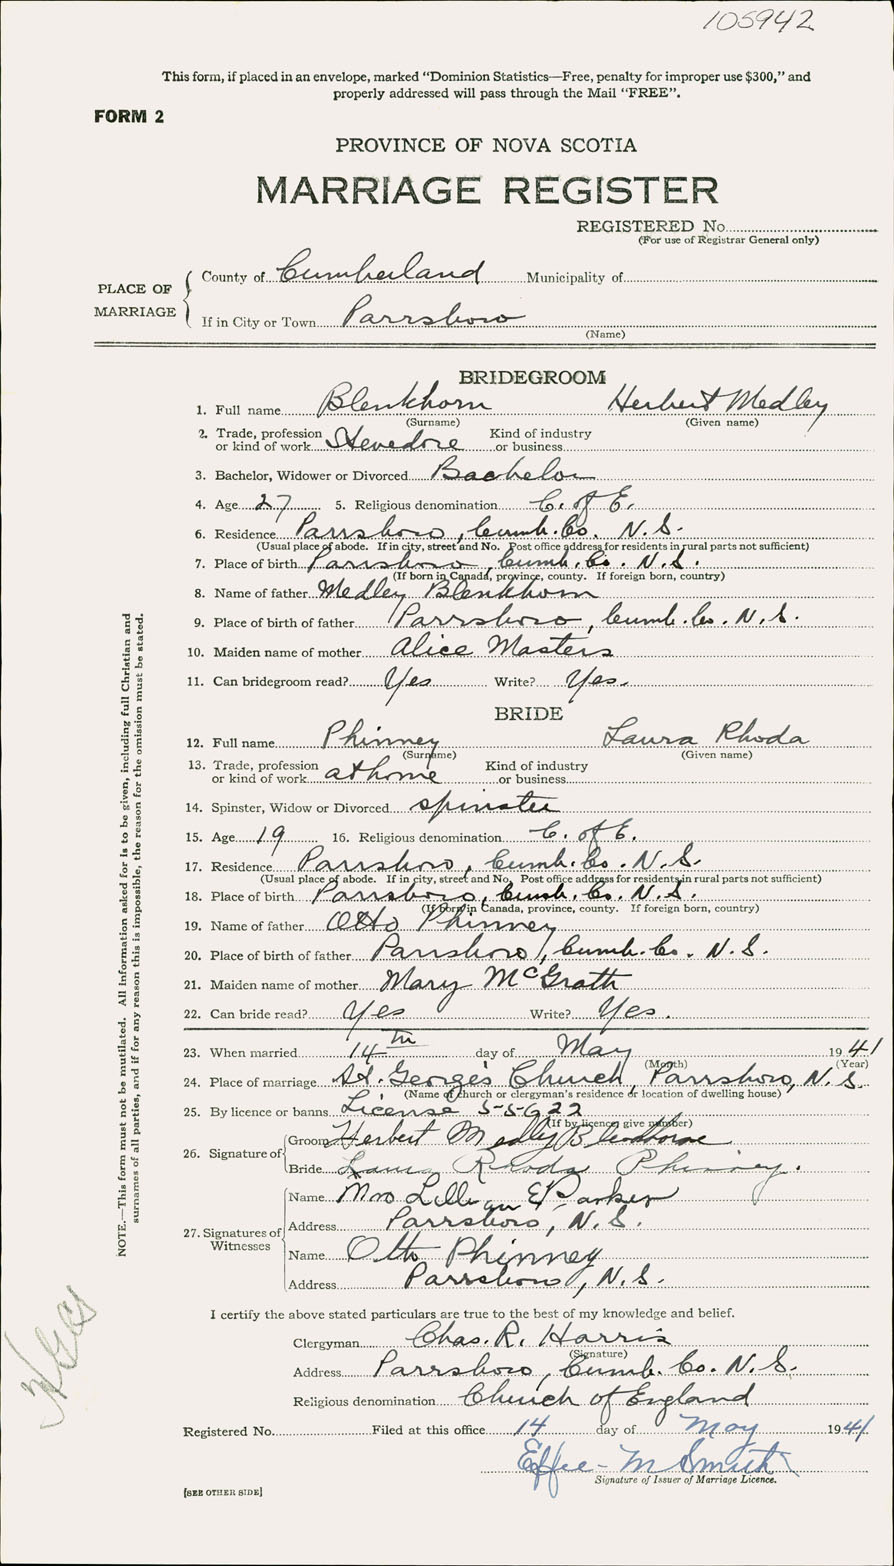 105942
This form, if placed in an envelope, marked “Dominion Statistics—Free, penalty for improper use $300,” and
properly addressed will pass through the Mail “FREE”.
FORM 2
PROVINCE OF NOVA SCOTIA
MARRIAGE REGISTER
REGISTERED No.
(For use of Registrar General only)
PLACE OF MARRIAGE
County of Cumberland Municipality of
If in City or Town Parrsboro
(Name)
BRIDEGROOM
1. Full name Blenkhorn Herbert Medley
(Surname) (Given name)
2. Trade, profession or kind of work Stevedore Kind of industry or business
3. Bachelor, Widower or Divorced Bachelor
4. Age 27 5. Religious denomination C. of E.
6. Residence Parrsboro, Cumb. Co. N.S.
(Usual place of abode. If in city, street and No. Post office address for residents in rural parts not sufficient)
7. Place of birth Parrsboro, Cumb. Co. N.S.
(If born in Canada, province, county. If foreign born, country)
8. Name of father Medley Blenkhorn
9. Place of birth of father Parrsboro, Cumb. Co. N.S.
10. Maiden name of mother Alice Masters
11. Can bridegroom read? Yes Write? Yes.
BRIDE
12. Full name Phinney Laura Rhoda
(Surname) (Given name)
13. Trade, profession or kind of work at home Kind of industry or business
14. Spinster, Widow or Divorced spinster
15. Age 19 16. Religious denomination C. of E.
17. Residence Parrsboro, Cumb. Co. N.S.
(Usual place of abode. If in city, street and No. Post office address for residents in rural parts not sufficient)
18. Place of birth Parrsboro, Cumb. Co. N.S.
(If born in Canada, province, county. If foreign born, country)
19. Name of father Otto Phinney
20. Place of birth of father Parrsboro, Cumb. Co. N.S.
21. Maiden name of mother Mary McGrath
22. Can bride read? Yes Write? Yes.
23. When married 14th day of May 1941
(Month) (Year)
24. Place of marriage St. George's Church, Parrsboro, N.S.
(Name of church or clergyman's residence or location of dwelling house)
25. By licence or banns License 55922
(If by licence give number)
26. Signature of
Groom Herbert Medley Blenkhorne
Bride Laura Rhoda Phinney.
27. Signatures of Witnesses
Name Mrs Lillian E Parker
Address Parrsboro, N.S.
Name Otto Phinney
Address Parrsboro, N.S.
I certify the above stated particulars are true to the best of my knowledge and belief.
Clergyman Chas. R. Harris
(Signature)
Address Parrsboro, Cumb. Co. N.S.
Religious denomination Church of England
Registered No. Filed at this office 14 day of May 1941
Effie M Smith
Signature of Issuer of Marriage Licence.
[SEE OTHER SIDE]
NOTE.—This form must not be mutilated. All Information asked for is to be given, including full Christian and
surnames of all parties, and if for any reason this is impossible, the reason for the omission must be stated.